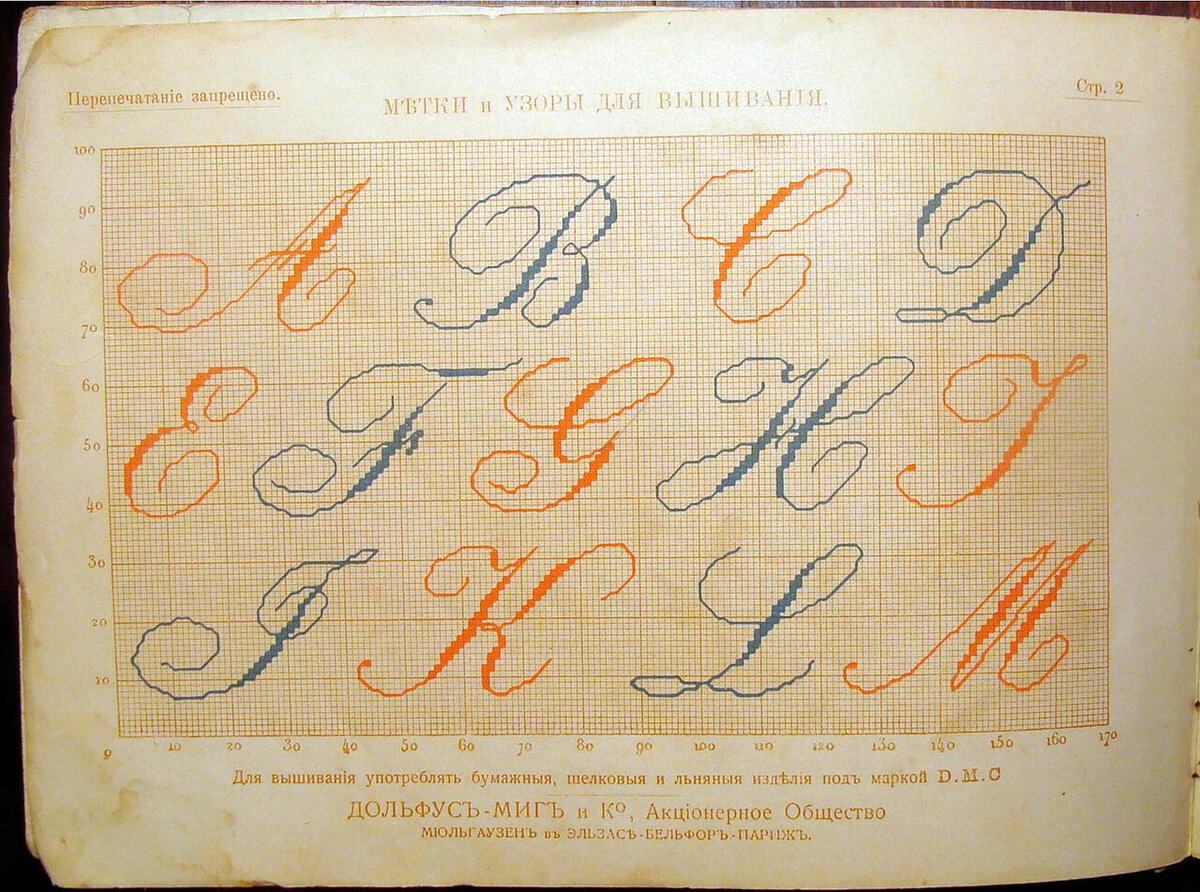 Перепечатаніе запрещено.
МѢТКИ и УЗОРЫ ДЛЯ ВЫШИВАНІЯ.
Стр. 2
100
90
A B C D
80
70
60
E F G H I
50
40
30
J K L M
20
10
0 10 20 30 40 50 60 70 80 90 100 110 120 130 140 150 160 170
Для вышиванія употреблять бумажныя, шелковыя и льняныя издѣлія подъ маркой D.M.C
ДОЛЬФУСЪ-МИГЪ и Кº, Акціонерное Общество
МЮЛЬГАУЗЕНЪ въ ЭЛЬЗАСѢ-БЕЛЬФОРЪ-ПАРИЖЪ.